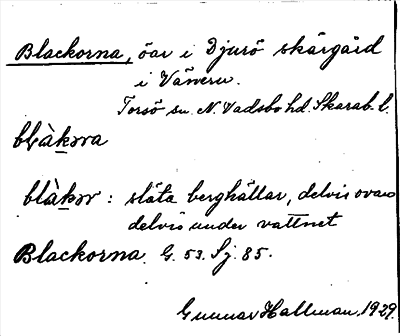 Blackorna, öar i Djurö skärgård
i Vänern.
Torsö sn. N. Vadsbo hd. Skarab. l.
blàkəra
blàkər : släta berghällar, delvis ovan
delvis under vattnet
Blackorna. G. 53. Sj. 85.
Gunnar Hallman, 1929.